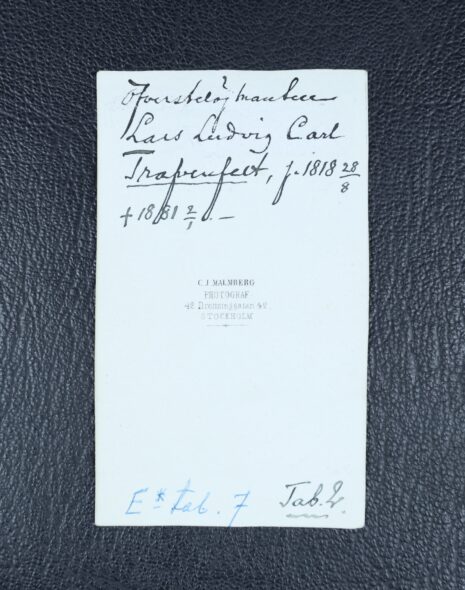 Öfverstelöjtnanten
Lars Ludvig Carl
Trafvenfelt, f. 1818 28/8
† 1881 2/1. —
C. J. MALMBERG
PHOTOGRAF
42 Drottninggatan 42
STOCKHOLM
E* tab. 7
Tab.